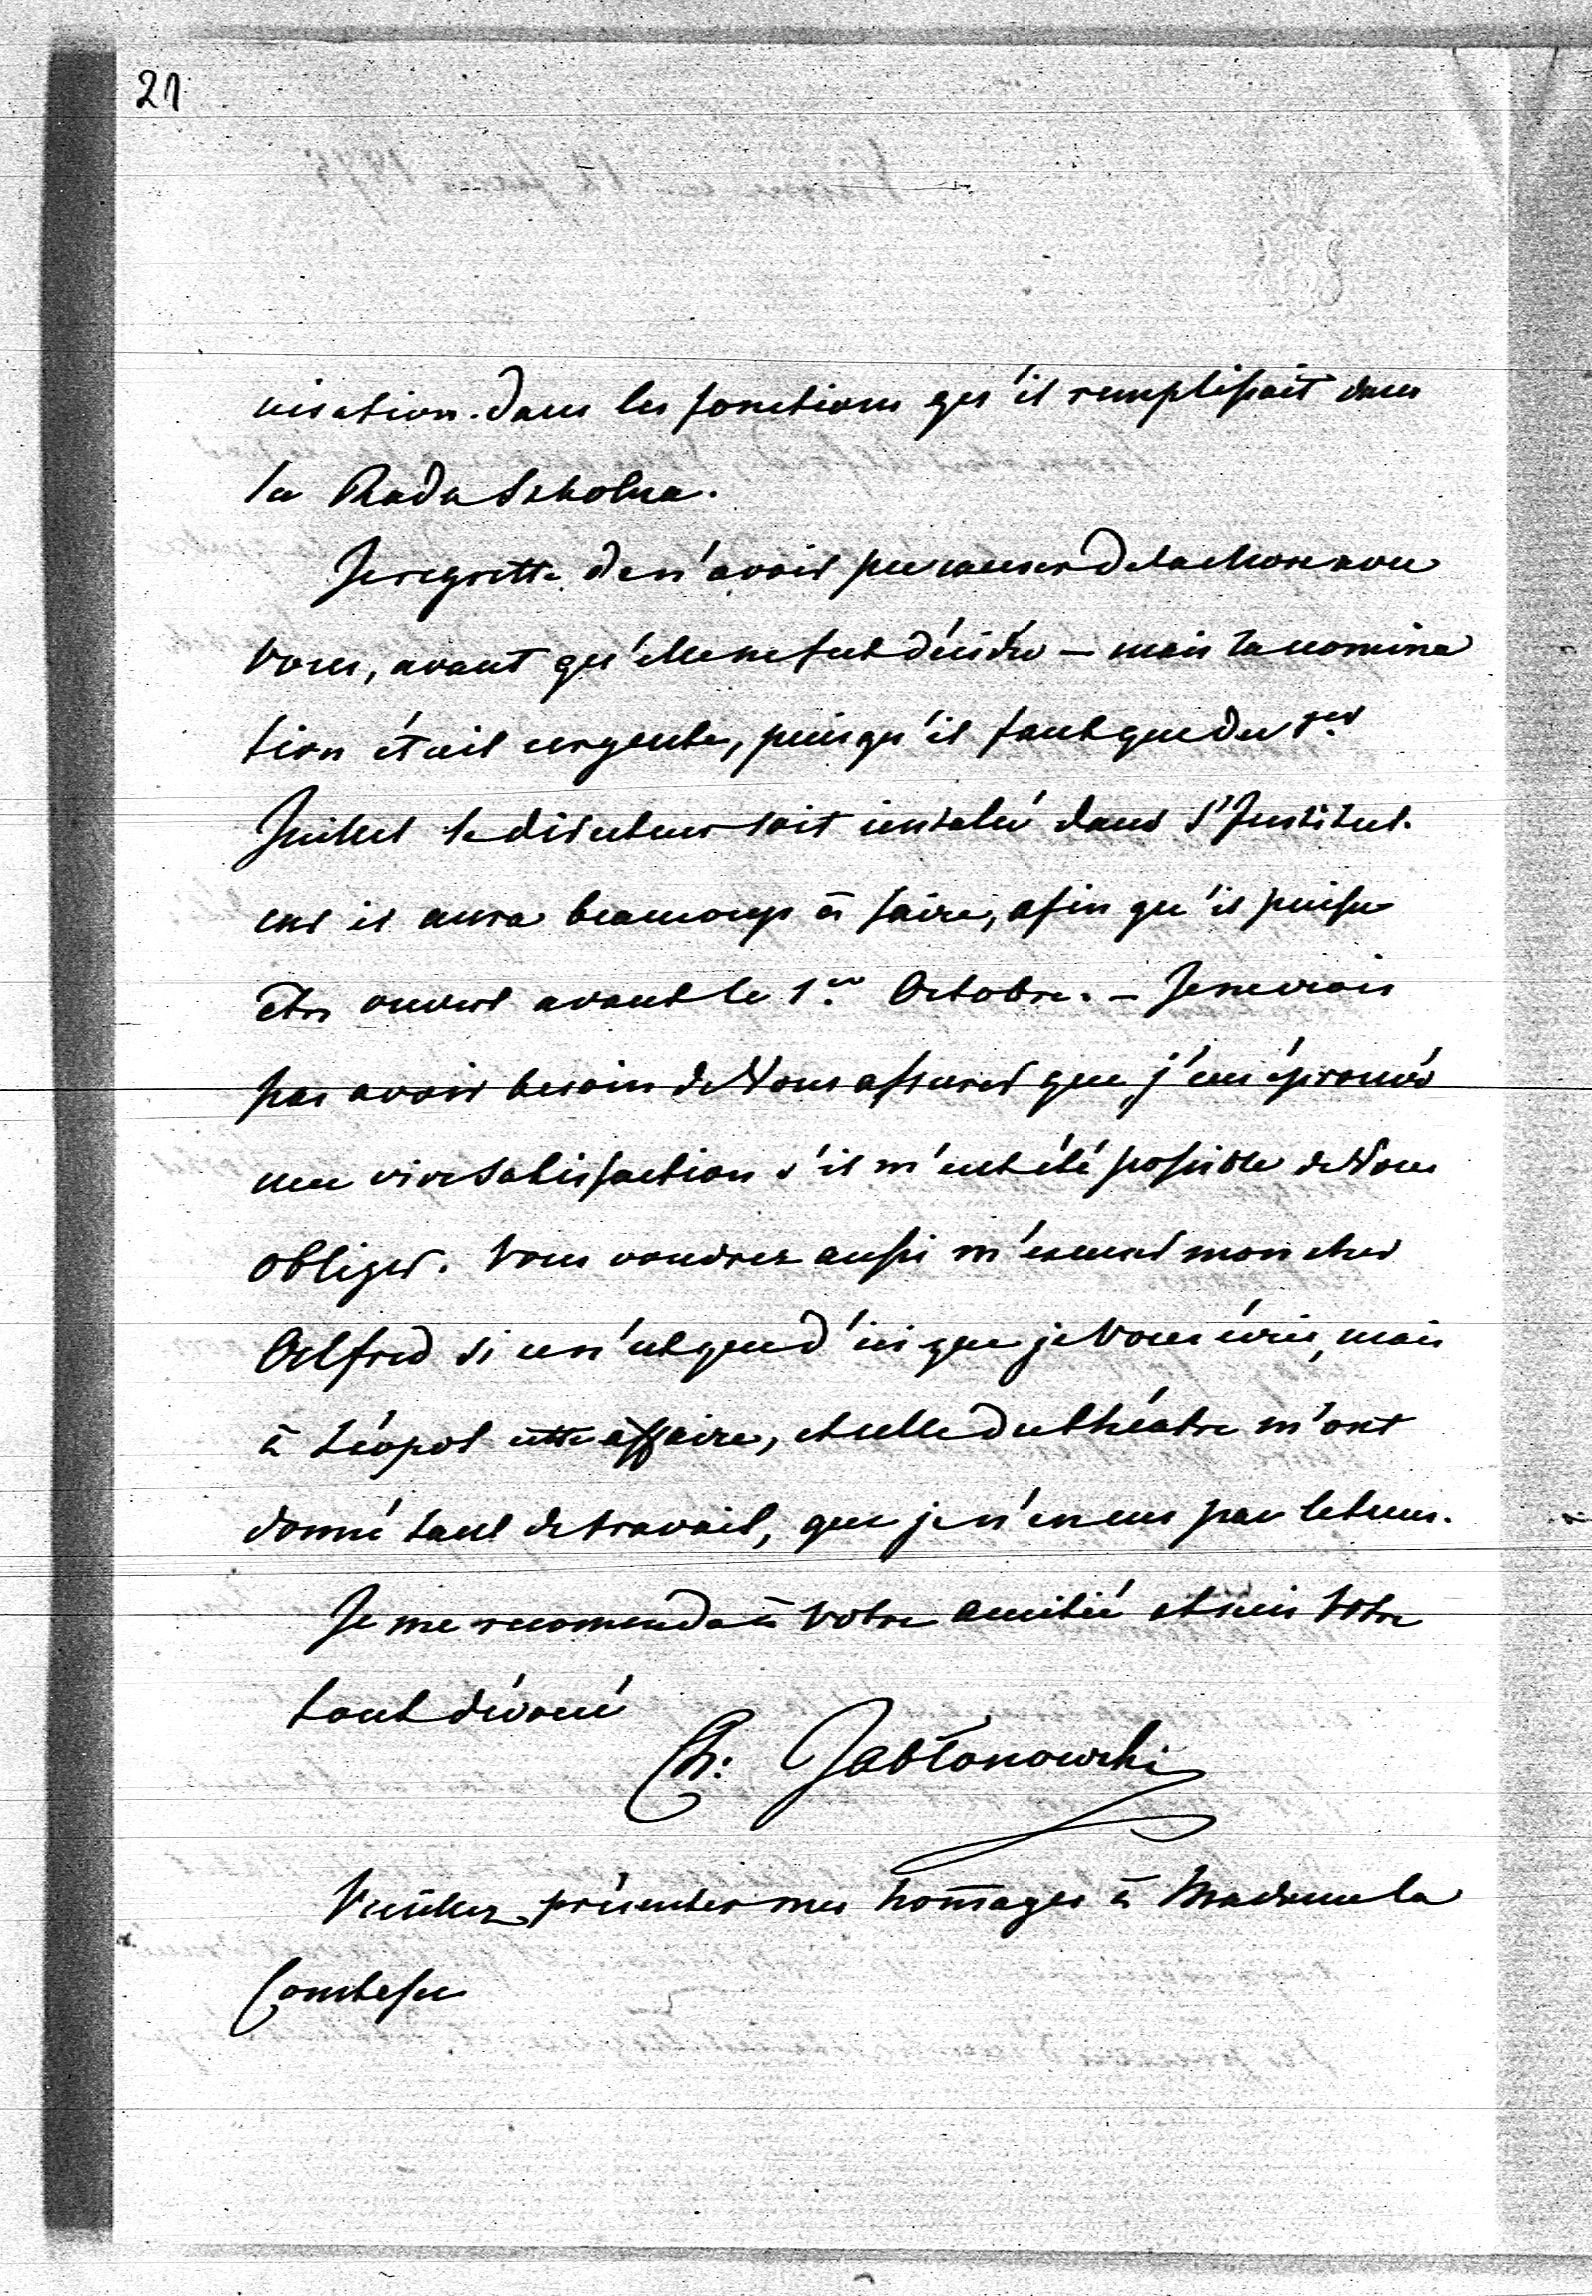 21
nisation dans les fonctions qu'il remplissait dans
la Rada Szkolna.
Je regrette de n'avoir pu causer de la chose avec
Vous, avant qu'elle ne fut décidée – mais la nomina
tion était urgente, puisqu'il faut que du 1er
Juillet le directeur soit installé dans l'Institut.
car il aura beaucoup à faire, afin qu'il puisse
être ouvert avant le 1er Octobre. – Je ne crois
pas avoir besoin de Vous assurer que j'eus éprouvé
une vive satisfaction s'il m'eut été possible de Vous
obliger. Vous voudrez aussi m'excuser mon cher
Alfred si ce n'est que d'ici que je Vous écris, mais
à Léopol cette affaire, et celle du théatre m'ont
donné tant de travail, que je n'en eus pas le tems.
Je me recomende à Votre amitié et suis Votre
tout dévoué
Ch: Jabłonowski
Veuillez présenter mes homages à Madame la
Comtesse